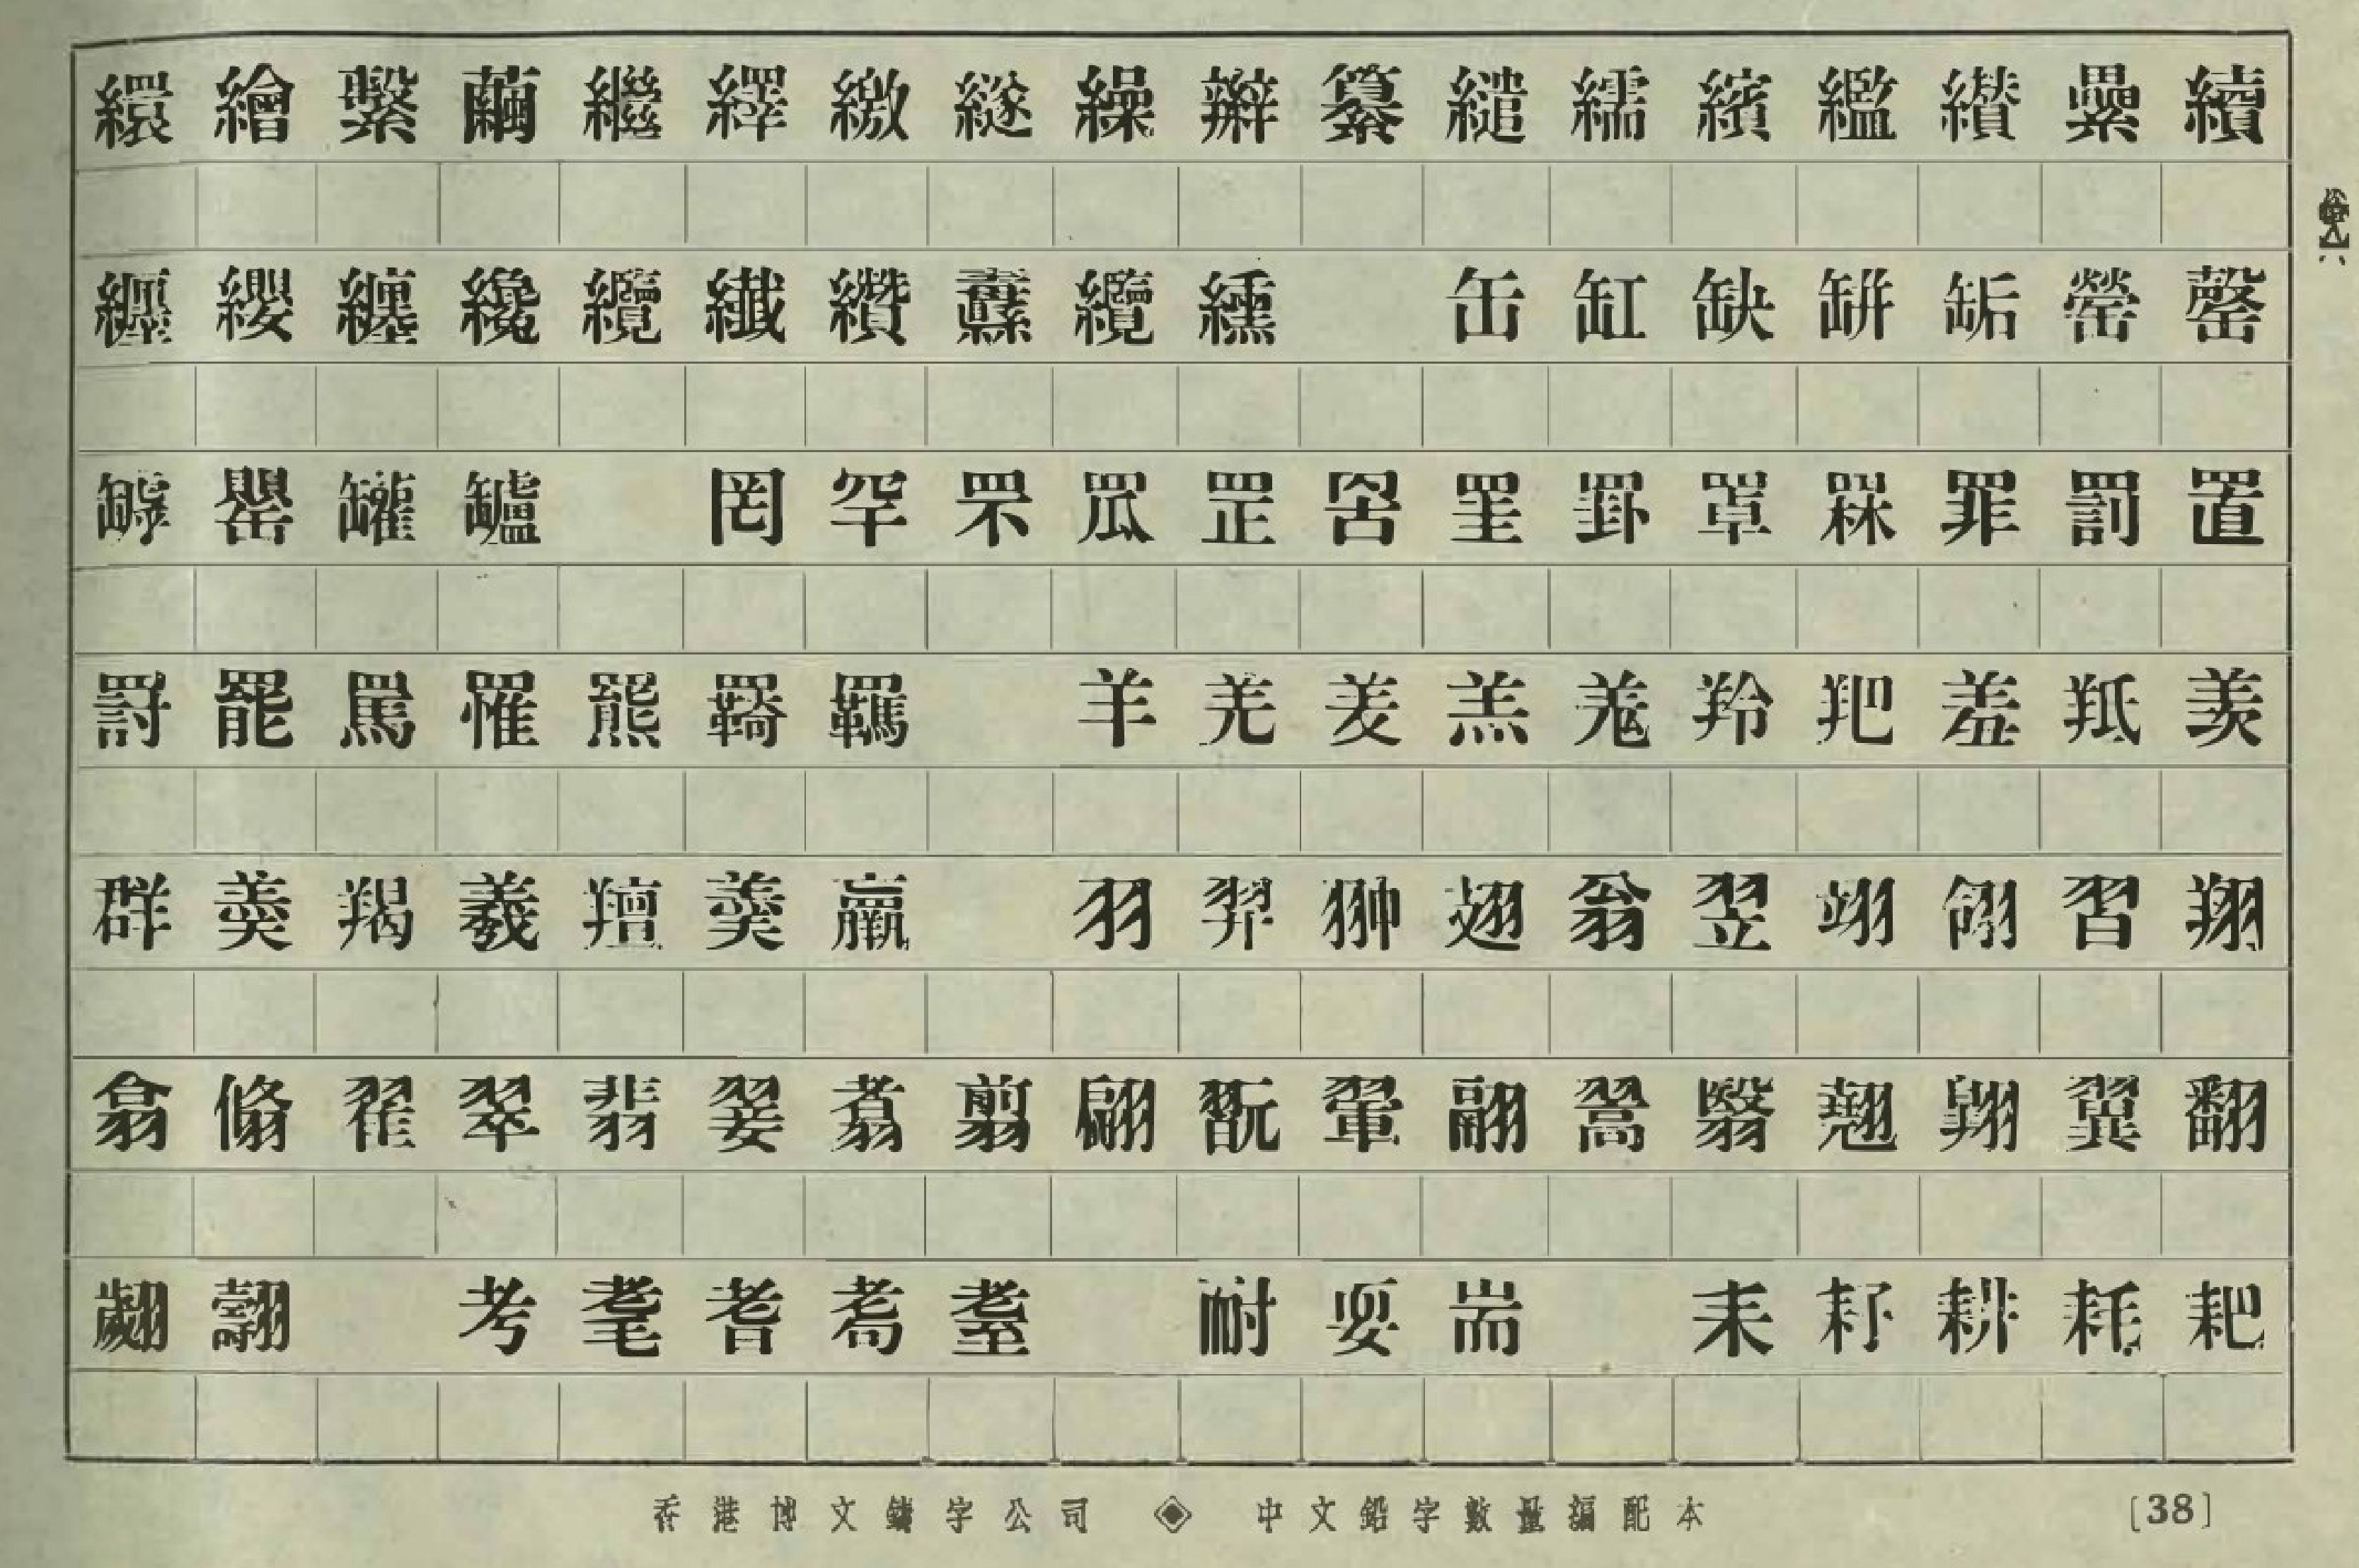 繯繪繫繭繼繹繳繸繰辮纂繾繻繽繿纉纍續
纏纓纏纔纜纖纘纛纜纁 缶缸缺缾缿罃罄
罅罌罐罏 罔罕罘罛罡罟罣罫罩罧罪罰置
罸罷罵罹羆羇羈 羊羌羑羔羗羚羓羞羝羨
群羮羯羲羶羹羸 羽羿翀翅翁翌翊翎習翔
翕翛翟翠翡翣翥翦翩翫翬翮翯翳翹翱翼翻
翽翿 考耄耆耇耋 耐耎耑 耒耔耕耗耙
香港博文鑄字公司 ◈ 中文鉛字數量編配本
[38]